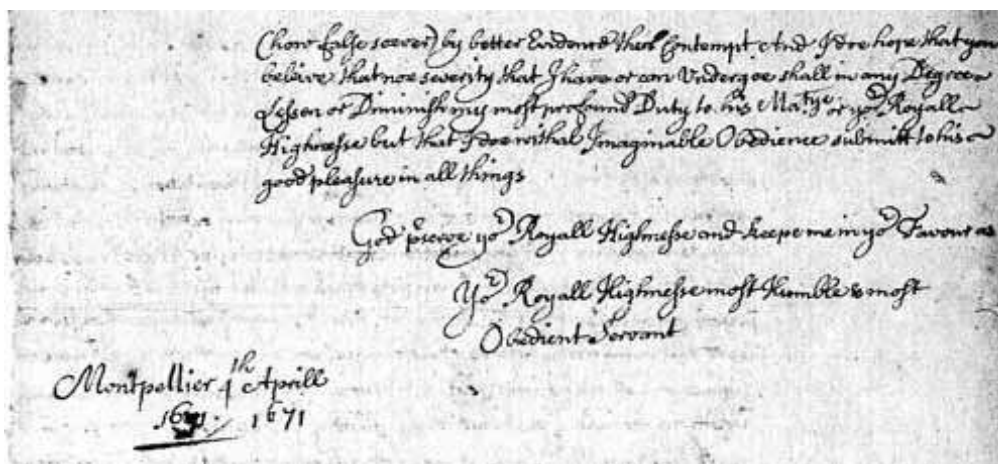 (how false soever) by better Evidence then Contempt And I doe hope that you
beleive that noe severity that I have or can Undergoe shall in any Degree
Lessen or Diminish my most profound Duty to his Matye or yor Royall
Highnesse but that I doe with al Imaginable Obedience submitt to his
good pleasure in all things
God pserve yor Royall Highnesse and keepe me in yor Favour as
Yor Royall Highnesse most Humble & most
Obedient Servant
Montpellier th Aprill
1671